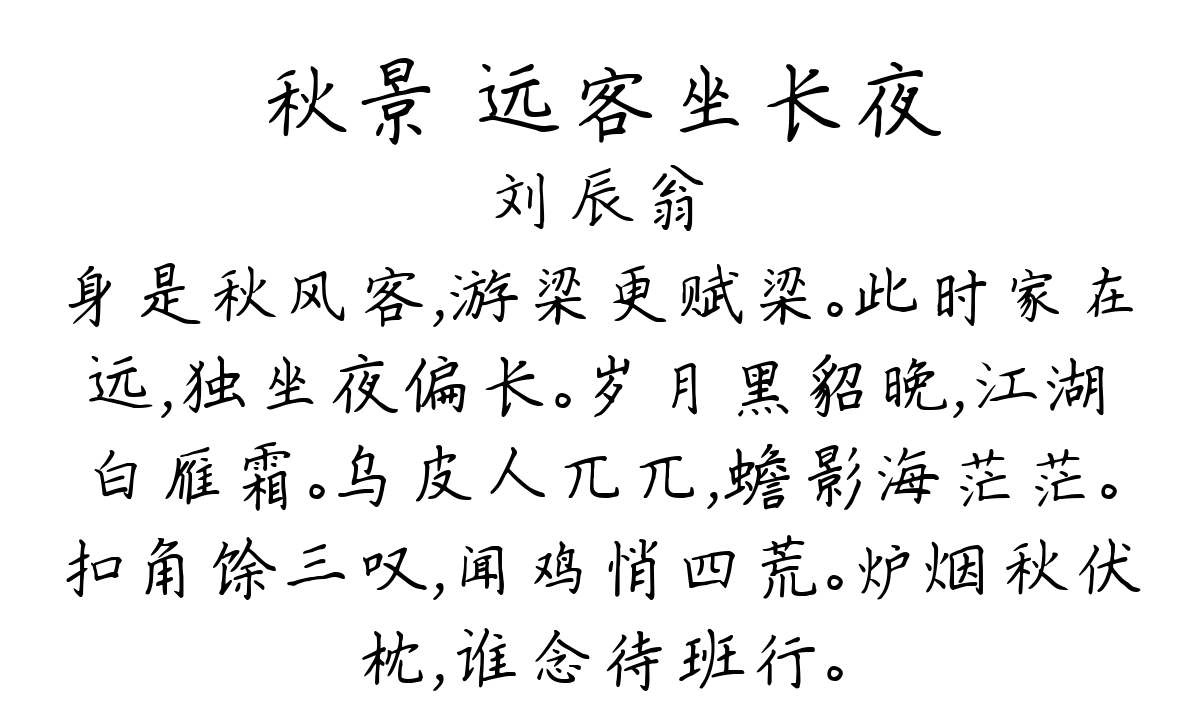 秋景 远客坐长夜
刘辰翁
身是秋风客,游梁更赋梁。此时家在
远,独坐夜偏长。岁月黑貂晚,江湖
白雁霜。乌皮人兀兀,蟾影海茫茫。
扣角馀三叹,闻鸡悄四荒。炉烟秋伏
枕,谁念待班行。